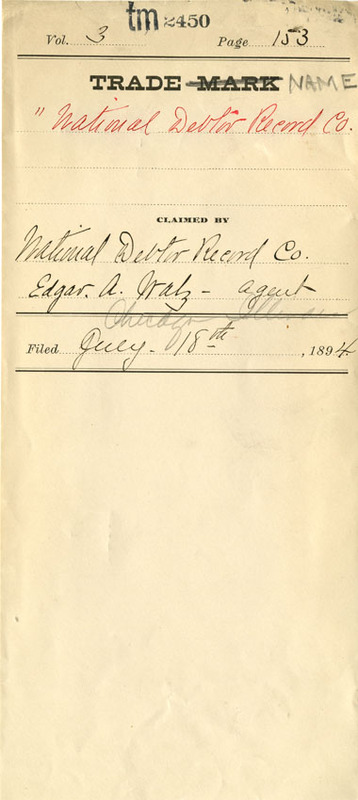 tm 2450
Vol. 3 Page 153
TRADE MARK NAME
" National Debtor Record Co.
CLAIMED BY
National Debtor Record Co.
Edgar. A. Walz - agent
Chicago Illinois
Filed July. 18th, 1894.